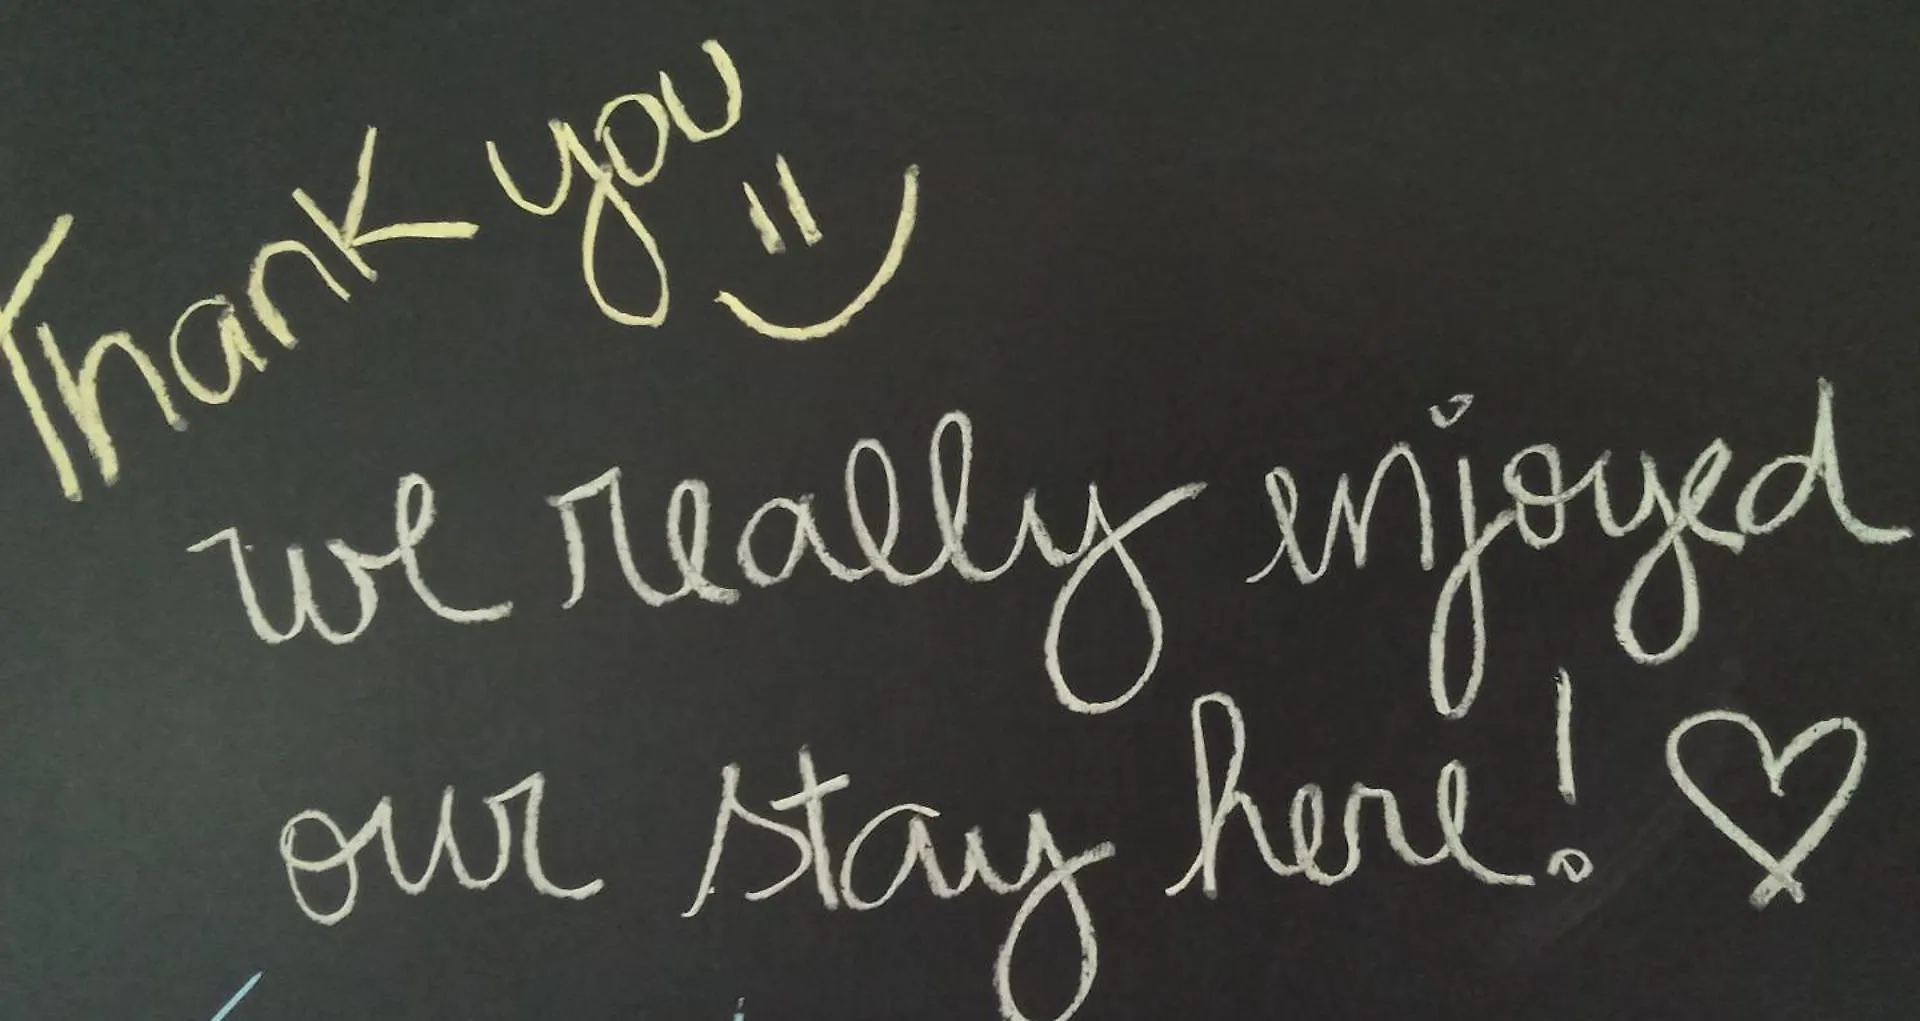 Thank you
we really enjoyed
our stay here!